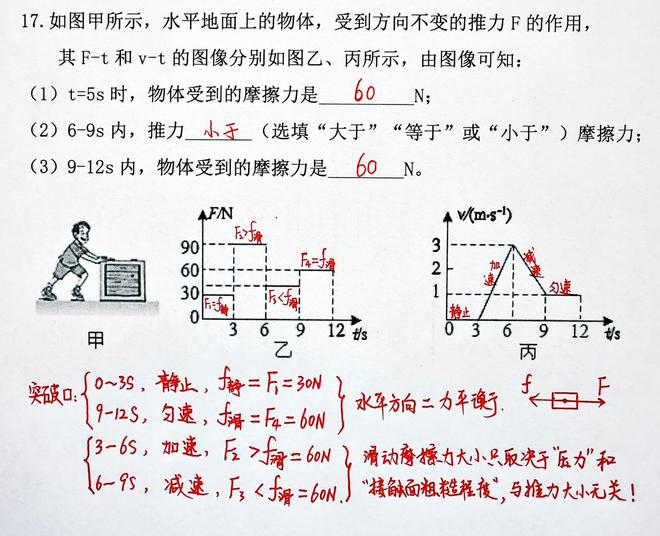 17. 如图甲所示，水平地面上的物体，受到方向不变的推力 F 的作用，
其 F-t 和 v-t 的图像分别如图乙、丙所示，由图像可知：
（1）t=5s 时，物体受到的摩擦力是 60 N；
（2）6-9s 内，推力 小于 （选填“大于”“等于”或“小于”）摩擦力；
（3）9-12s 内，物体受到的摩擦力是 60 N。
甲
F/N
90
60
30
0
3 6 9 12 t/s
F₁=f静
F₂>f滑
F₃<f滑
F₄=f滑
乙
v/(m·s⁻¹)
3
2
1
0 3 6 9 12 t/s
静止
加速
减速
匀速
丙
突破口:
0~3S，静止，f静=F₁=30N
9-12S，匀速，f滑=F₄=60N
水平方向二力平衡.
f F
3-6S，加速，F₂>f滑=60N
6-9S，减速，F₃<f滑=60N.
滑动摩擦力大小只取决于“压力”和
“接触面粗糙程度”,与推力大小无关!